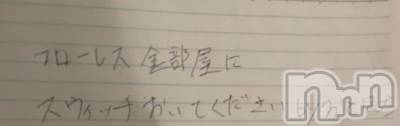 フローレス全部屋に
スウィッチおいてください
nยn